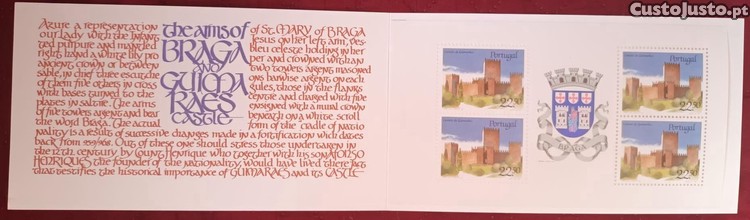 CustoJusto.pt
Azure a representation of St. MARY of BRAGA
our Lady with the Infant Jesus on her left arm, dres-
ted purpure and mantled bleu celeste holding in her
right hand a white lily pro per and crowned with an
ancient crown or between two towers argent masoned
sable, in chief three escutche ons barwise argent on each
of them five others in cross gules, those in the flanks
with bases turned to the centre and charged with five
plates in saltire. The arms ensigned with a mural crown
of five towers argent and bear beneath on a white scroll
the word Braga. The actual form of the cradle of natio
nality is a result of successive changes made in a fortification wich dates
back from 959/968. Outs of these one should stress those undertaken in
the 12th. century by Count Henrique who together with his son AFONSO
HENRIQUES the founder of the nationality, would have lived there fact
that testifies the historical importance of GUIMARAES and its CASTLE
The arms of
BRAGA
AND
GUIMA
RAES
CASTLE
Portugal
22.50
Portugal
22.50
BRAGA
Portugal
22.50
Portugal
22.50